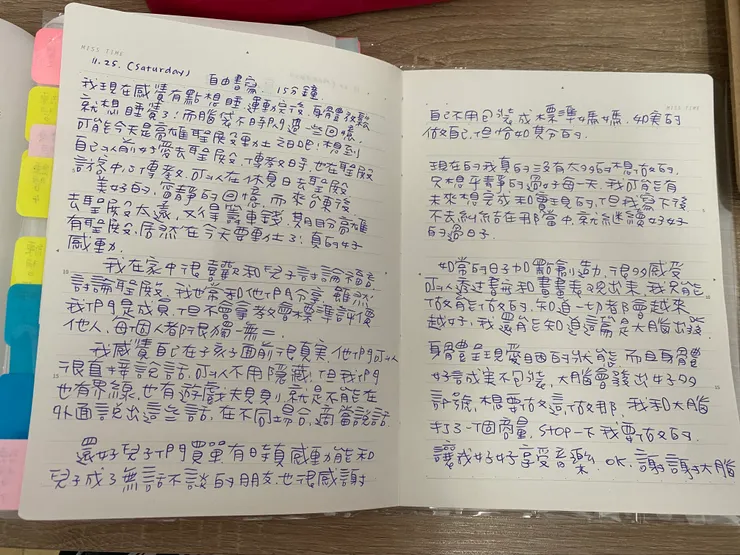 MISS TIME
11.25. (Saturday) 自由書寫 15分鐘
我現在感覺有點想睡,運動完後,身體放鬆
就想睡覺了!而腦袋不時閃過一些回憶,
可能今天是高雄聖殿動土之日吧!想到
自己以前好愛去聖殿,傳教時,也在聖殿
訪客中心傳教,可以在休息日去聖殿
美好的,寧靜的回憶,而來屏東後
去聖殿太遠,又得籌車錢,期盼高雄
有聖殿,居然在今天要動土了!真的好
感動,
我在家中很喜歡和兒子討論福音
討論聖殿,我也常和他們分享,雖然
我們是成員,但不會拿教會標準評價
他人,每個人都很獨一無二,
我感覺自己在孩子面前很真實,他們可以
很直接說話,可以不用隱藏,但我們
也有界線,也有遊戲規則,就是不能在
外面說出這些話,在不同場合,適當說話
還好兒子們買單,有時頗感動能和
兒子成了無話不談的朋友,也很感謝
MISS TIME
自己不用包裝成標準媽媽,40實的
做自己,但恰40其分的,
現在的我真的沒有太99的想做的,
只想平靜的過好每一天,我可能有
未來想完成和實現的,但我寫下後
不去糾結在那當中,就繼續好好
的過日子,
40常的日子加點創造力,很99感受
可以透過書寫和畫畫表現出來,我只能
做能做的,知道一切都會越來
越好,我還能知道這論是大腦出發
身體呈現愛睏的狀態,而且身體
好誠實不包裝,大腦會發出好99
訊號,想要做這,做那,我和大腦
打了一個商量,STOP一下我要做的,
讓我好好享受音樂,OK,謝謝大腦